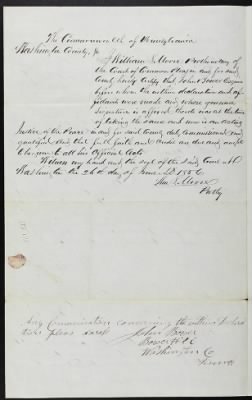 The Commonwealth of Pennsylvania
Washington County, Ss
I William S Moore Prothonotary of
the Court of Common Pleas in and for said
County hereby Certify that John Bower Esquire
before whom the within declaration and af-
fidavit were made and whose genuine
signature is affixed thereto was at the time
of taking the same and now is an acting
Justice of the Peace in and for said County duly Commissioned and
qualified and that full faith and credit are due and ought
to be given to all his official Acts
Witness my hand and the seal of the said Court at
Washington the 26th day of June AD 1856
Wm S. Moore
Prothy
Any Comunication concerning the within Declara
tion please direct
John Bower
Bower Hill
Washington Co